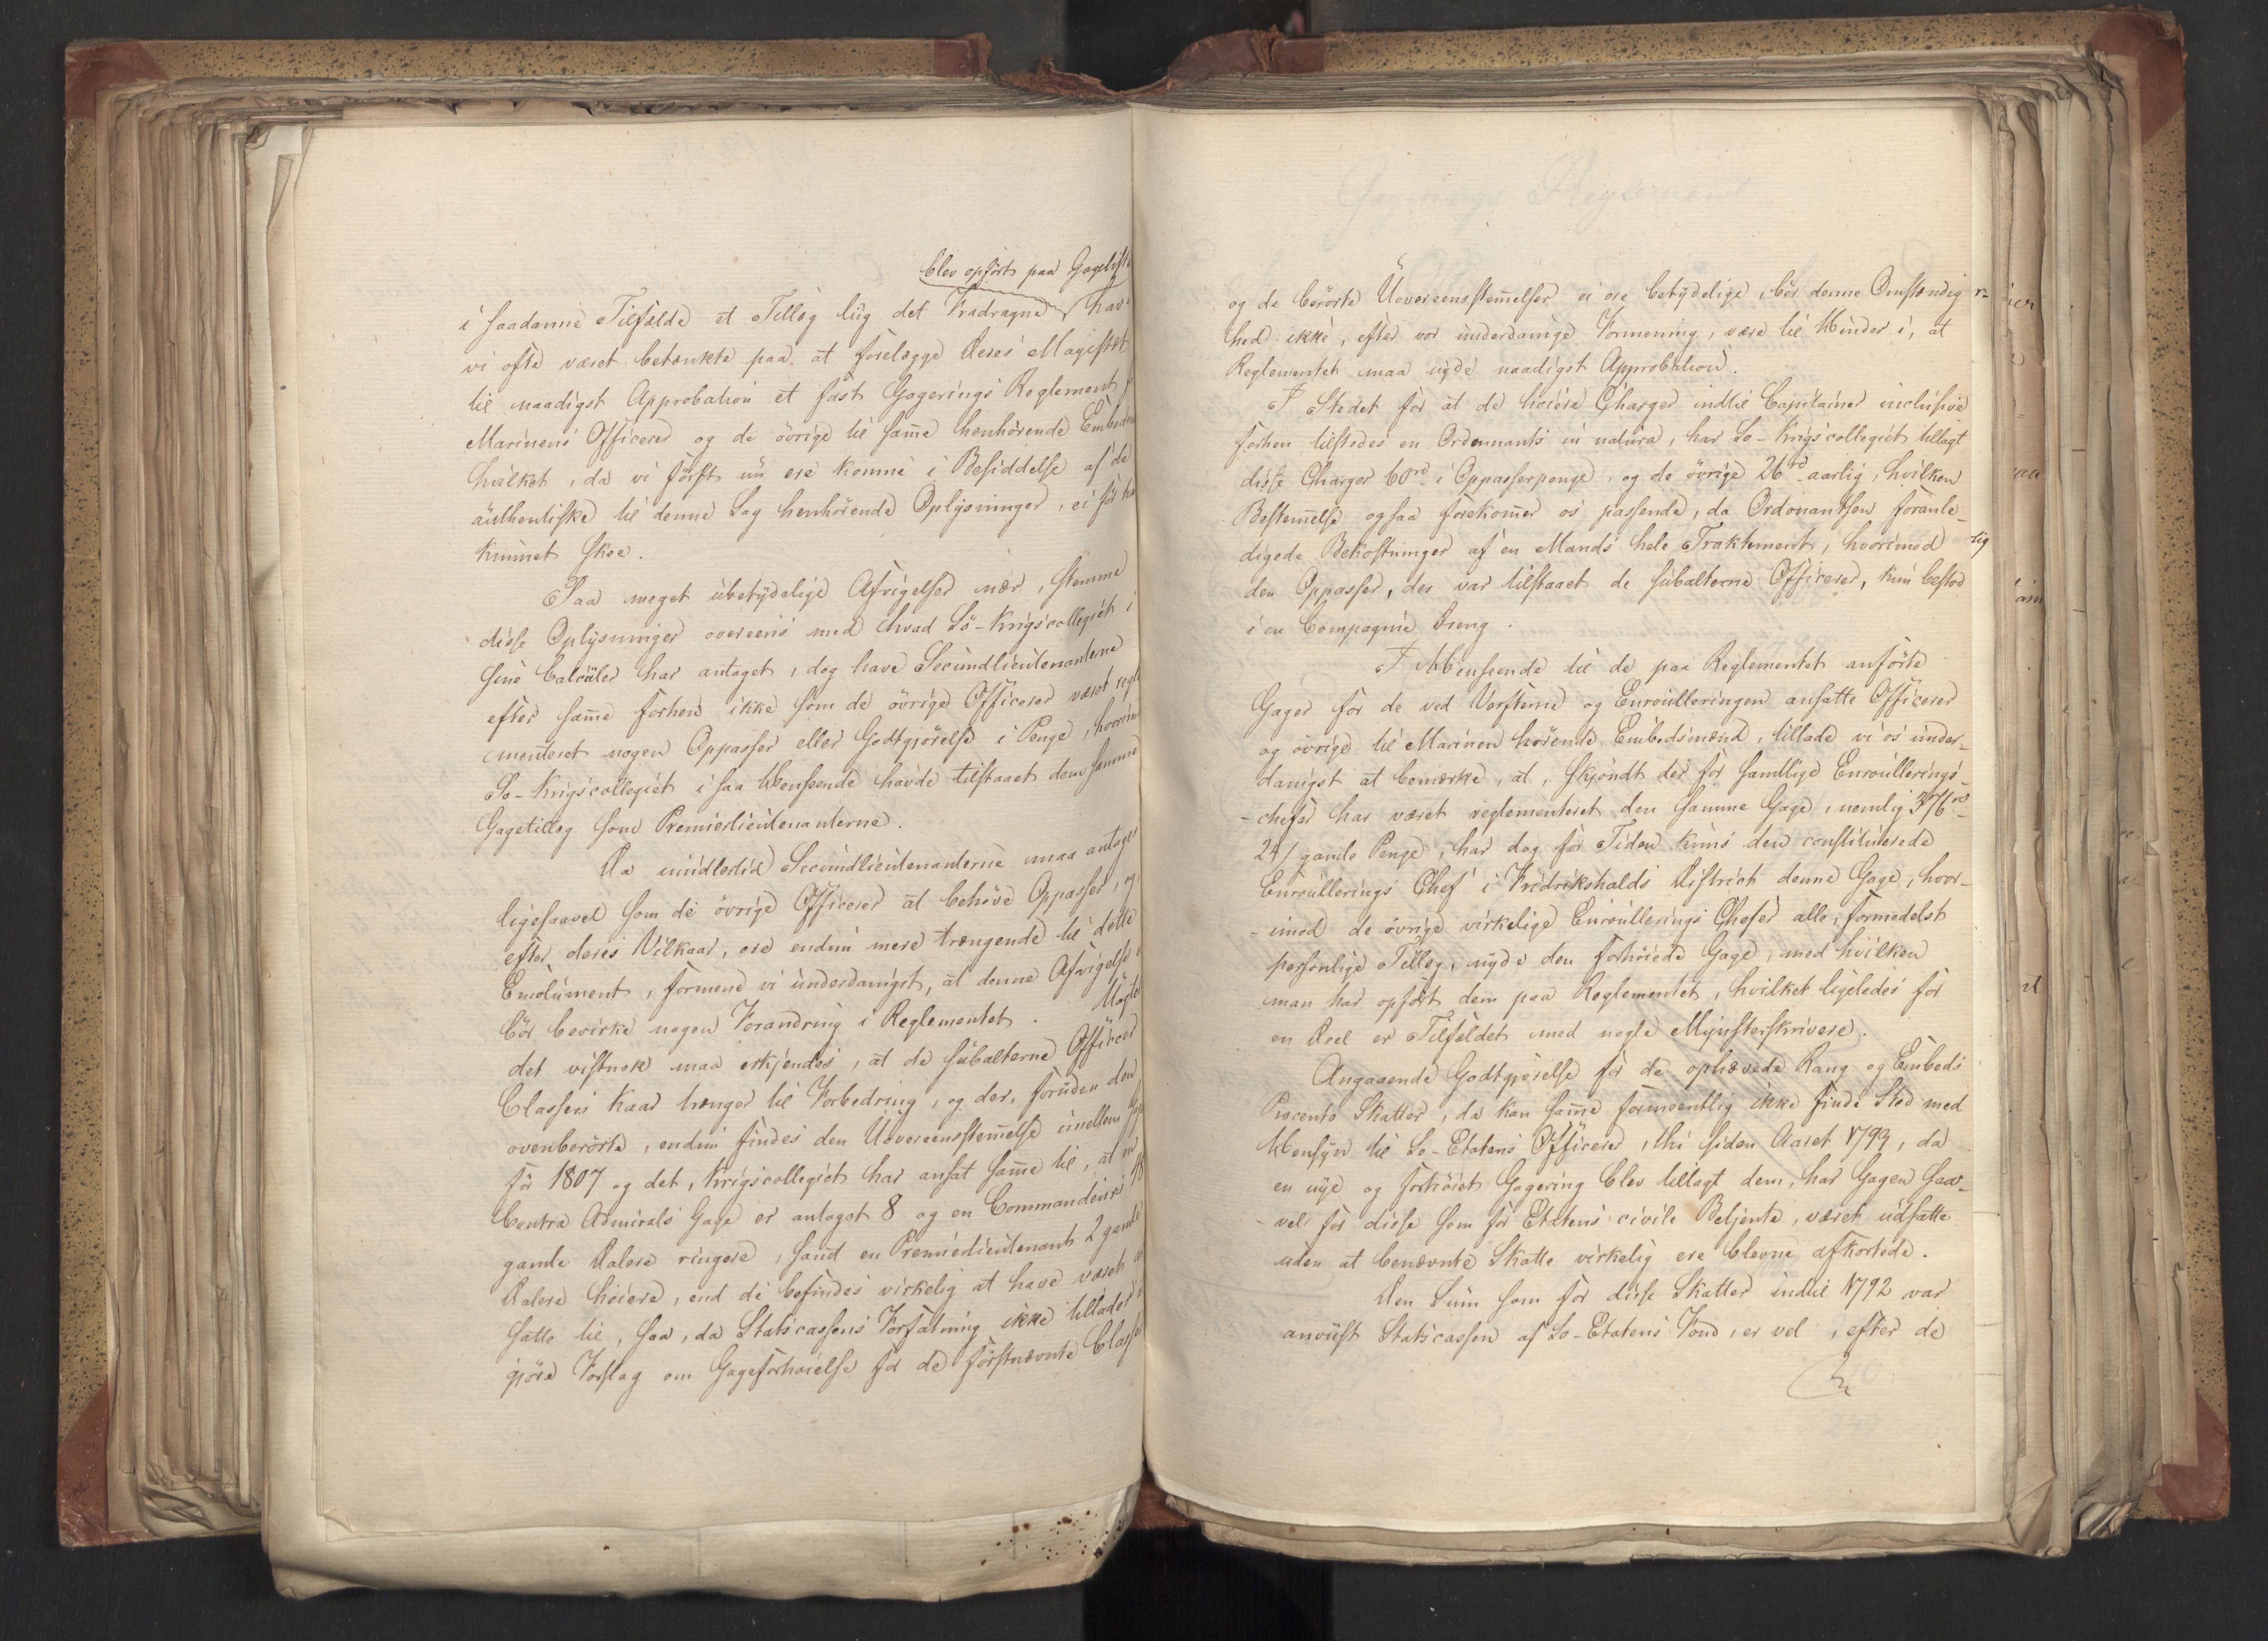 blev opført paa Gagelist
i saadanne Tilfælde et Tillæg liig det Fradragne, have
vi ofte været betænkte paa at forelægge Deres Majestæt
til naadigst Approbation et fast Gagerings Reglement
Marinens Officerer og de øvrige til samme henhørende Embeds
hvilket, da vi først nu ere komne i Besiddelse af de
authentiske til denne Sag henhørende Oplysninger, ei før ha
kunnet skee.
Paa meget ubetydelige Afvigelser nær, stemme
disse Oplysninger overeens med hvad Sø-Krigscollegiet i
sine Calculer har antaget, dog have Secundlieutenanterne
efter samme forhen ikke som de øvrige Officerer været regle
menteret nogen Oppasser eller Godtgjørelse i Penge, hvorim
Sø-Krigscollegiet i saa Henseende havde tilstaaet dem samme
Gagetillæg som Premierlieutenanterne.
Da imidlertid Secundlieutenanterne maa antages
ligesaavel som de øvrige Officerer at behøve Oppasser, og
efter deres Vilkaar, ere endnu mere trængende til dette
Emolument, formene vi underdanigst, at denne Afvigelse
bør bevirke nogen Forandring i Reglementet.
det vistnok maa erkjendes, at de subalterne Officerer
Classers Kaar trænger til Forbedring, og der, foruden den
ovenberørte, endnu findes den Uovereensstemmelse imellem
før 1807 og det, Krigscollegiet har ansat samme til, at en
Contra Admirals Gage er antaget 8 og en Commandeurs
gamle Dalere ringere, samt en Premierlieutenants 2 gamle
Dalere høiere, end de befindes virkelig at have været
satte til, saa, da Statscassens Forfatning ikke tillader
gjøre Forslag om Gageforhøielse for de førstnævnte Classer
og de berørte Uovereensstemmelser ei ere betydelige, bør denne Omstændig
hed ikke, efter vor underdanige Formening, være til Hinder i, at
Reglementet maa nyde naadigst Approbation.
I Stedet for at de høiere Charger indtil Capitainer inclusive
forhen tilstedes en Ordonnants in natura, har Sø-Krigscollegiet tillagt
disse Charger 60 rd i Oppasserpenge, og de øvrige 26 rd aarlig, hvilken
Bestemmelse ogsaa forekommer os passende, da Ordonantsen foranle-
digede Bekostninger af en Mands hele Traktement, hvorimod
den Oppasser, der var tilstaaet de subalterne Officerer, kun bestod
i en Compagnie Dreng.
I Henseende til de paa Reglementet anførte
Gager for de ved Verfterne og Enroulleringen ansatte Officerer
og øvrige til Marinen hørende Embedsmænd, tillade vi os under-
danigst at bemærke, at, skjøndt der for samtlige Enroullerings-
-chefer har været reglementeret den samme Gage, nemlig 376 rd
24 s gamle Penge, har dog for Tiden kuns den constituerede
Enroullerings Chef i Fredrikshalds District denne Gage, hvor-
-imod de øvrige virkelige Enroullerings Chefer alle, formedelst
personlige Tillæg, nyde den forhøiede Gage, med hvilken
man har opført dem paa Reglementet, hvilket ligeledes for
en Deel er Tilfældet med nogle Mynsterskrivere.
Angaaende Godtgjørelse for de ophævede Rang og Embeds
Procento Skatter, da kan samme formeentlig ikke finde Sted med
Hensyn til Sø-Etatens Officerer, thi siden Aaret 1793, da
en nye og forhøiet Gagering blev tillagt dem, har Gagen saa-
-vel for disse som for Etatens civile Betjente, været udsatte
uden at benævnte Skatte virkelig ere blevne afkortede.
Den Sum som for disse Skatter indtil 1792 var
anviist Statscassen af Sø-Etatens Fond, er vel, efter de